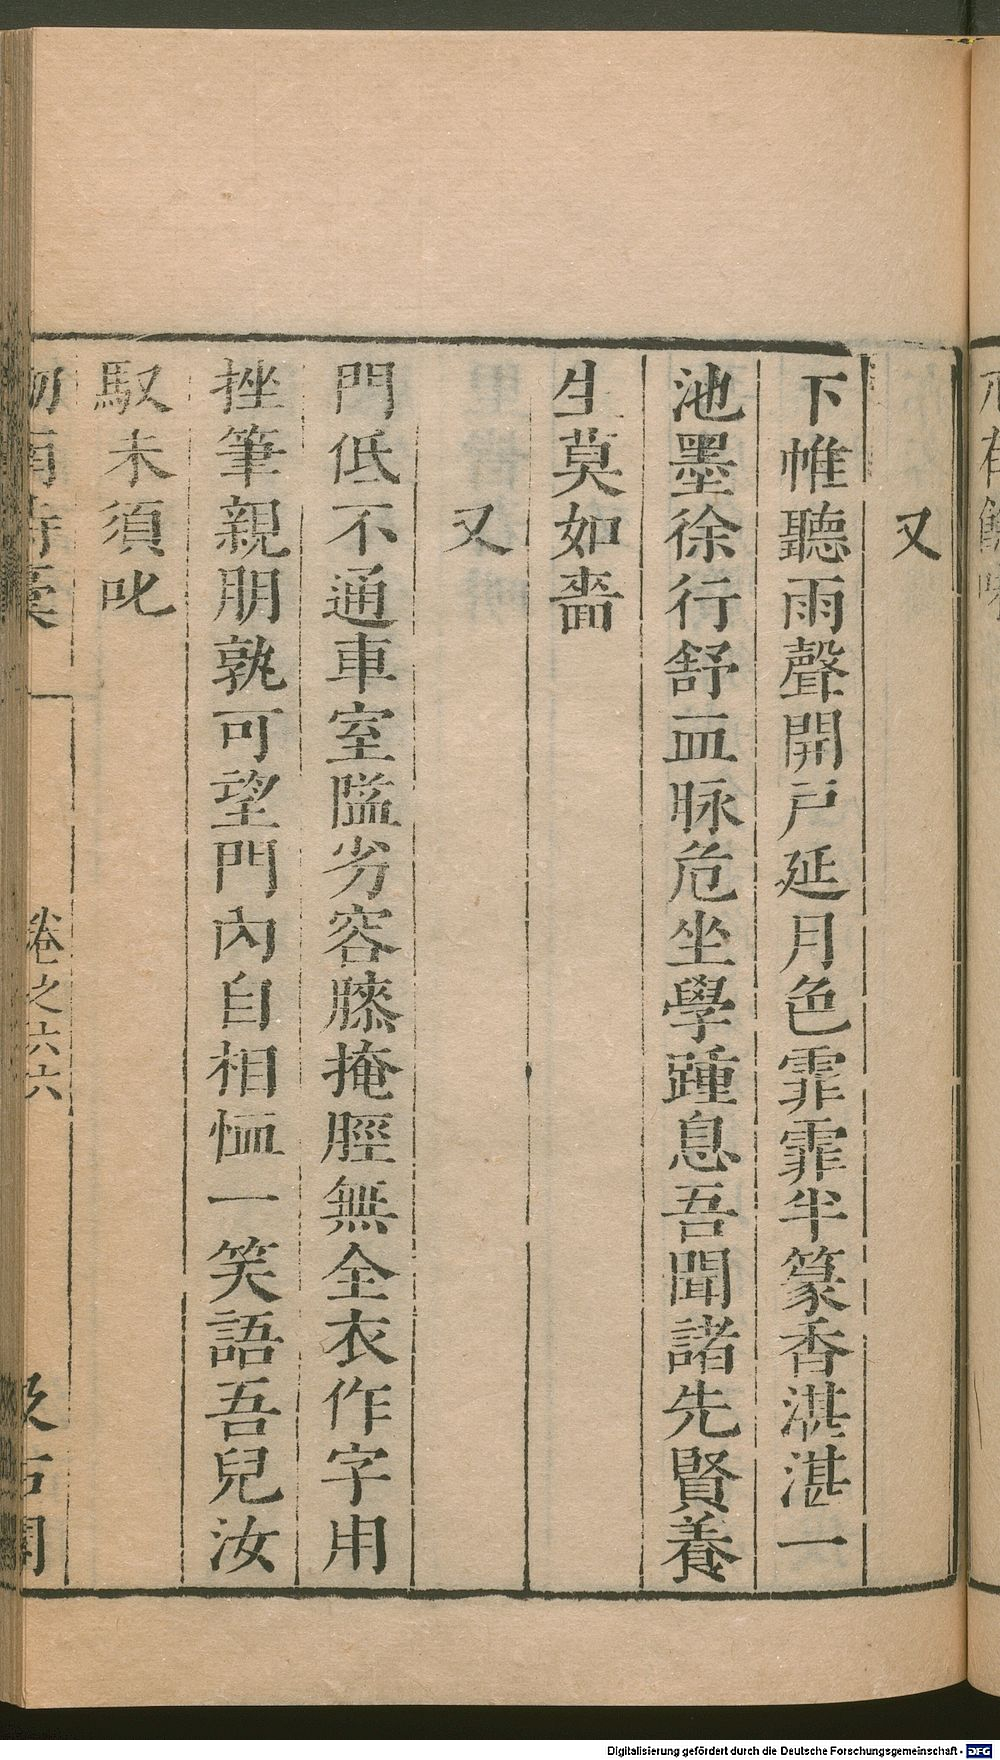 又
下帷聽雨聲開戸延月色霏霏半篆香湛湛一
池墨徐行舒血脉危坐學踵息吾聞諸先賢養
生莫如嗇
又
門低不通車室隘劣容膝掩脛無全衣作字用
挫筆親朋孰可望門內自相恤一笑語吾兒汝
馭未須叱
劒南詩稾
卷之六六
汲古閣
Digitalisierung gefördert durch die Deutsche Forschungsgemeinschaft - DFG